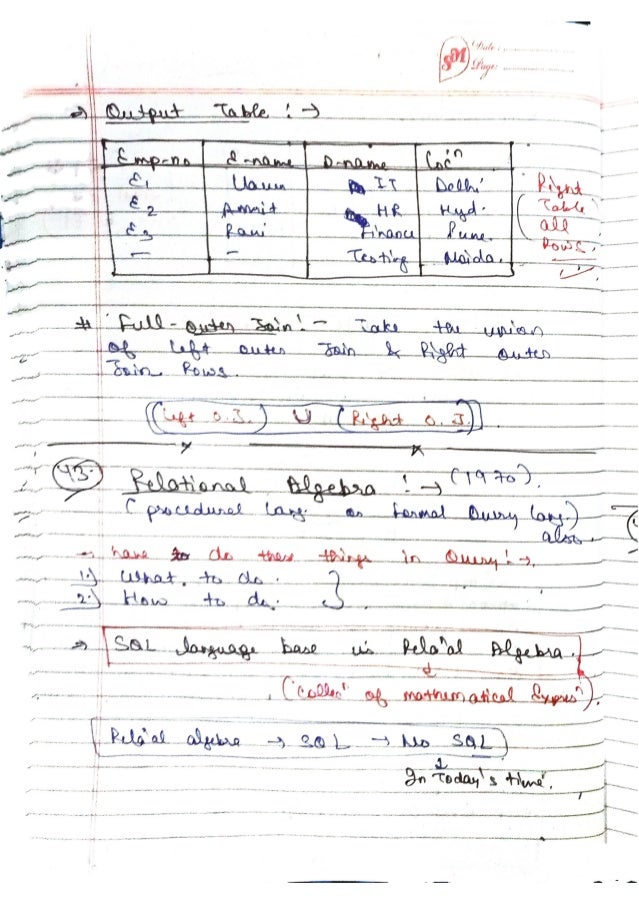 SM Date :
Page:
=> Output Table : →
Emp-no E-name D-name Locⁿ
E1 Varun IT Delhi
E2 Amrit HR Hyd.
E3 Ravi Finance Pune
— — Testing Noida.
Right
Table
all
Rows.
* Full-outer Join :- Take the union
of left outer Join & Right outer
Join Rows.
(Left O.J.) U (Right O.J.)
43. Relational Algebra : → (1970).
( procedural lang. or formal Query lang.)
also.
→ have to do these things in Query : →.
1.) What to do.
2.) How to do.
=> SQL language base is Rela'al Algebra.
↓
('Collecⁿ of mathematical Expresⁿ).
Rela'al algebra → SQL → No SQL
↓
In Today's time.